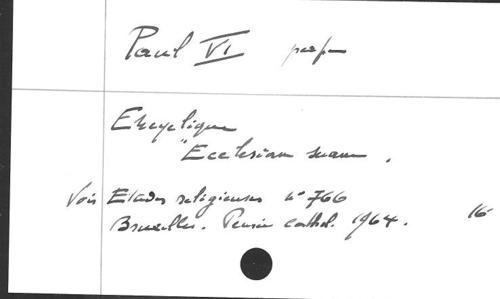 Paul VI pape
Encyclique
"Ecclesiam suam.
Voir Etudes religieuses n° 766
Bruxelles. Pensée cathol. 1964. 16